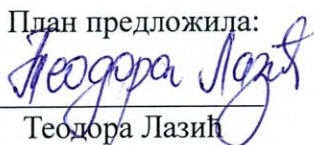 План предложила:
Теодора Лазић
Теодора Лазић